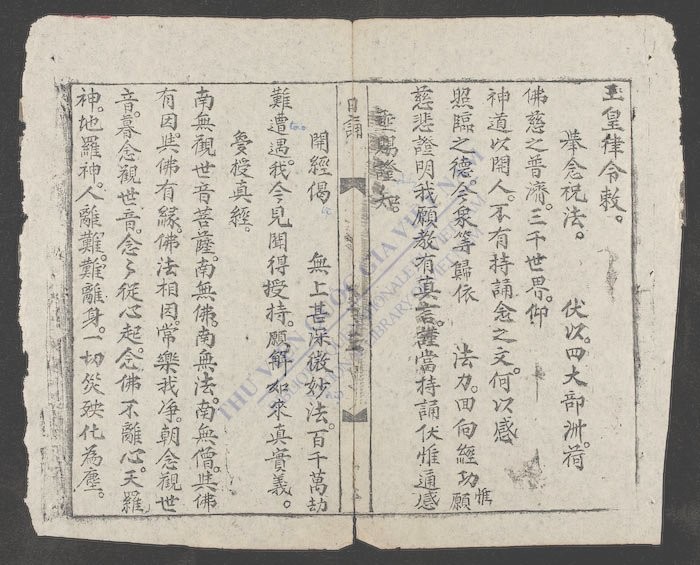 玉皇律令敕。
舉念祝法。 伏以。四大部洲。荷
佛慈之普濟。三千世界。仰
神道以開人。不有持誦金之文。何以感
照臨之德。今衆等歸依 法力。回向經功。惟願
慈悲證明我願教有真言。謹當持誦伏惟通感
垂賜證知。
日誦
開經偈 無上甚深微妙法。百千萬劫
難遭遇。我今見聞得授持。願解如來真實義。
受授真經。
南無觀世音菩薩。南無佛。南無法。南無僧。與佛
有因與佛有緣。佛法相因。常樂我净。朝念觀世
音。暮念觀世音。念〻從心起念佛不離心。天羅
神。地羅神。人離難。難離身。一切災殃化為塵。
THƯ VIỆN QUỐC GIA VIỆT NAM
BIBLIOTHÈQUE NATIONALE DU VIETNAM
NATIONAL LIBRARY OF VIETNAM